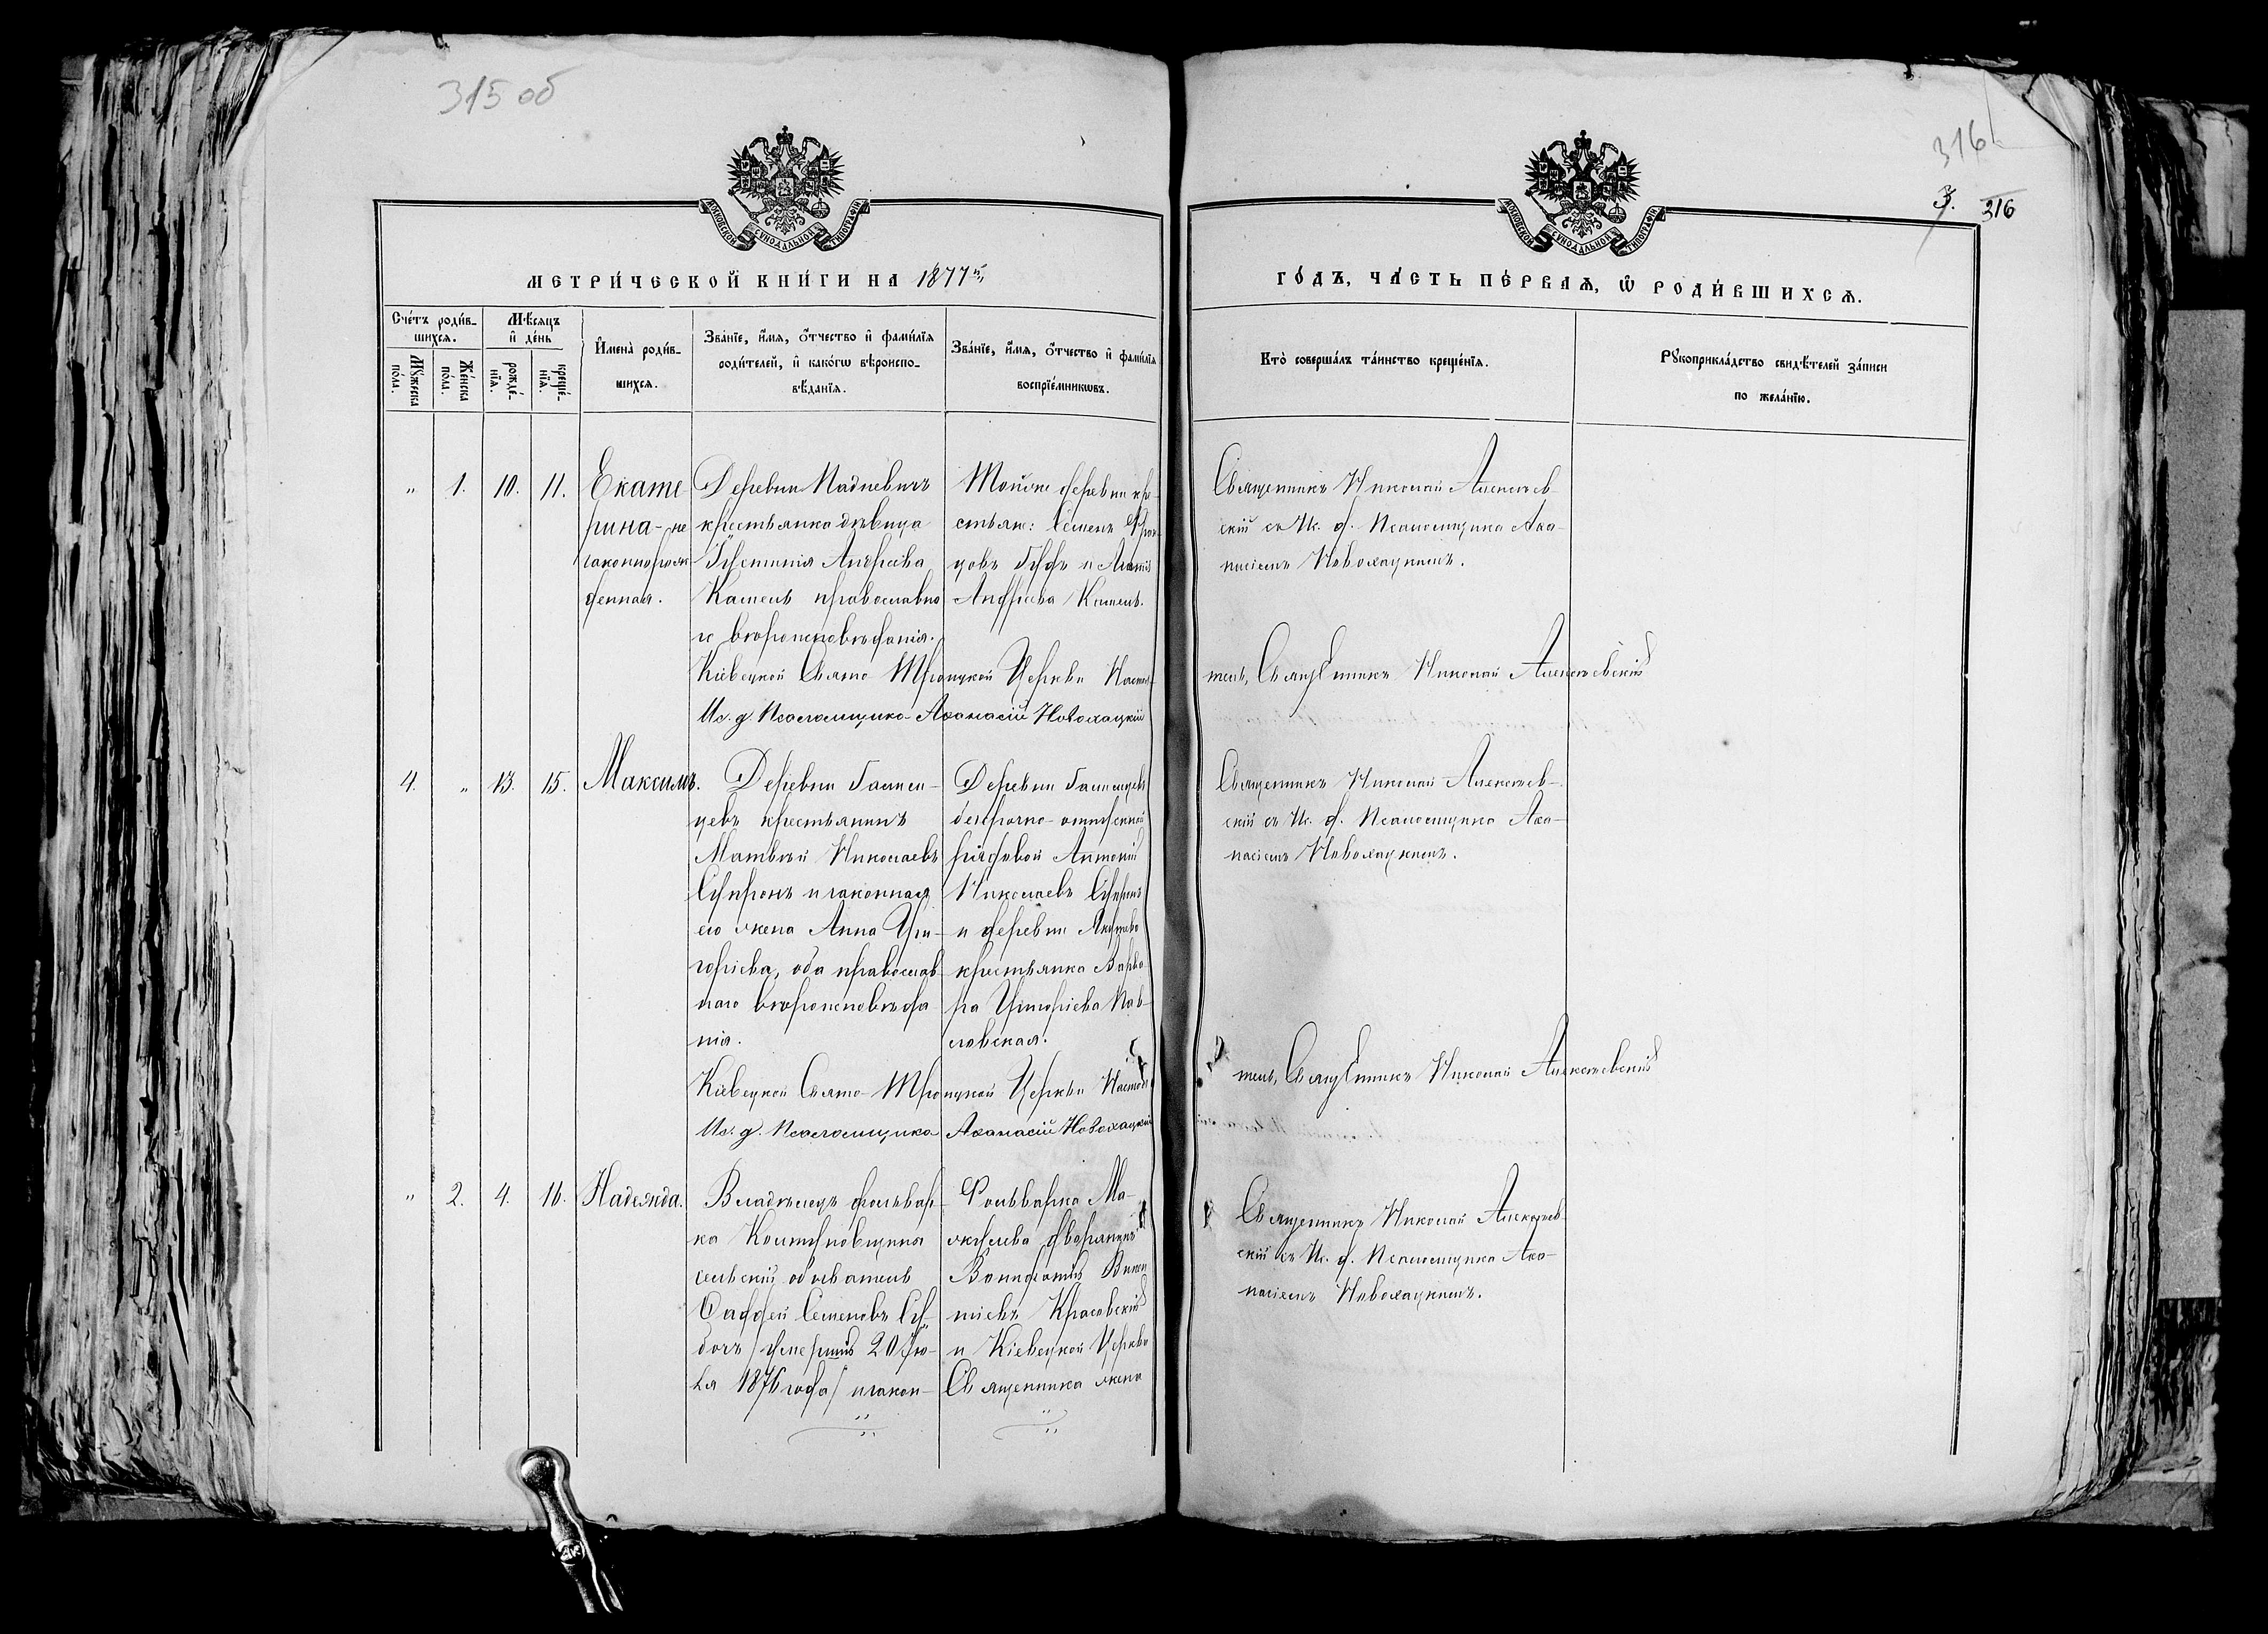 315 об
316
3. 316
МОСКОВСКОЙ СѴНОДАЛЬНОЙ ТИПОГРАФІИ
МОСКОВСКОЙ СѴНОДАЛЬНОЙ ТИПОГРАФІИ
МЕТРИ́ЧЕСКОЙ КНИ́ГИ НА 1877й
ГО́ДЪ, ЧА́СТЬ ПЕ́РВАѦ, Ѡ РОДИ́ВШИХСѦ.
Сче́тъ роди́в-
шихсѧ.
Мꙋ́жеска по́ла.
Же́нска по́ла.
Мѣ́сяцъ
и҆ де́нь
рожде́-
нїѧ.
креще́-
нїѧ.
И҆мена̀ роди́в-
шихсѧ.
Зва́нїе, и҆́мѧ, ѻ҆́тчество и҆ фами́лїѧ
роди́телей, и҆ како́гѡ вѣроиспо-
вѣ́данїѧ.
Зва́нїе, и҆́мѧ, ѻ҆́тчество и҆ фами́лїѧ
воспрїе́мникѡвъ.
Кто̀ соверша́лъ та́инство креще́нїѧ.
Рꙋкоприкла́дство свидѣ́телей за́писи
по жела́нїю.
" 1. 10. 11.
Екате
рина - не
законнорож
денная.
Деревни
крестьянка дѣвица
Іустинія Андреева
Камень православна
го вѣроисповѣданія.
Тойже деревни кре
стьяне: Семенъ
и
Андреева Камень.
Священникъ Николай Алексѣев-
скій съ Ис. д. Псаломщика Аѳа-
насіемъ Новохацкимъ.
Кіевецкой Свято Троицкой Церкви Настоя-
тель, Священникъ Николай Алексѣевскій
Ис. д. Псаломщика Аѳанасій Новохацкій
4. " 13. 15.
Максимъ.
Деревни
цевъ крестьянинъ
Матвѣй Николаевъ
Супронъ и законная
его жена Анна Гри-
горіева, оба православ
наго вѣроисповѣда
нія.
Деревни
безсрочно-отпускной
рядовой Антоній
Николаевъ Супронъ
и деревни
крестьянка Варва
ра Григоріева Пав-
ловская.
Священникъ Николай Алексѣев-
скій съ Ис. д. Псаломщика Аѳа-
насіемъ Новохацкимъ.
Кіевецкой Свято-Троицкой Церкви Настоя
тель, Священникъ Николай Алексѣевскій
Ис. д. Псаломщика Аѳанасій Новохацкій
" 2. 4. 16.
Надежда.
Владѣлецъ фольвар-
ка
сельскій обыватель
Ѳаддей Семеновъ Су-
бочъ /умершій 20 Ію-
ля 1876 года/ и закон-
Фольварка Ма-
дворянинъ
Викен
тіевъ Красовскій
и Кіевецкой Церкви
Священника жена
Священникъ Николай Алексѣев-
скій съ Ис. д. Псаломщика Аѳа-
насіемъ Новохацкимъ.